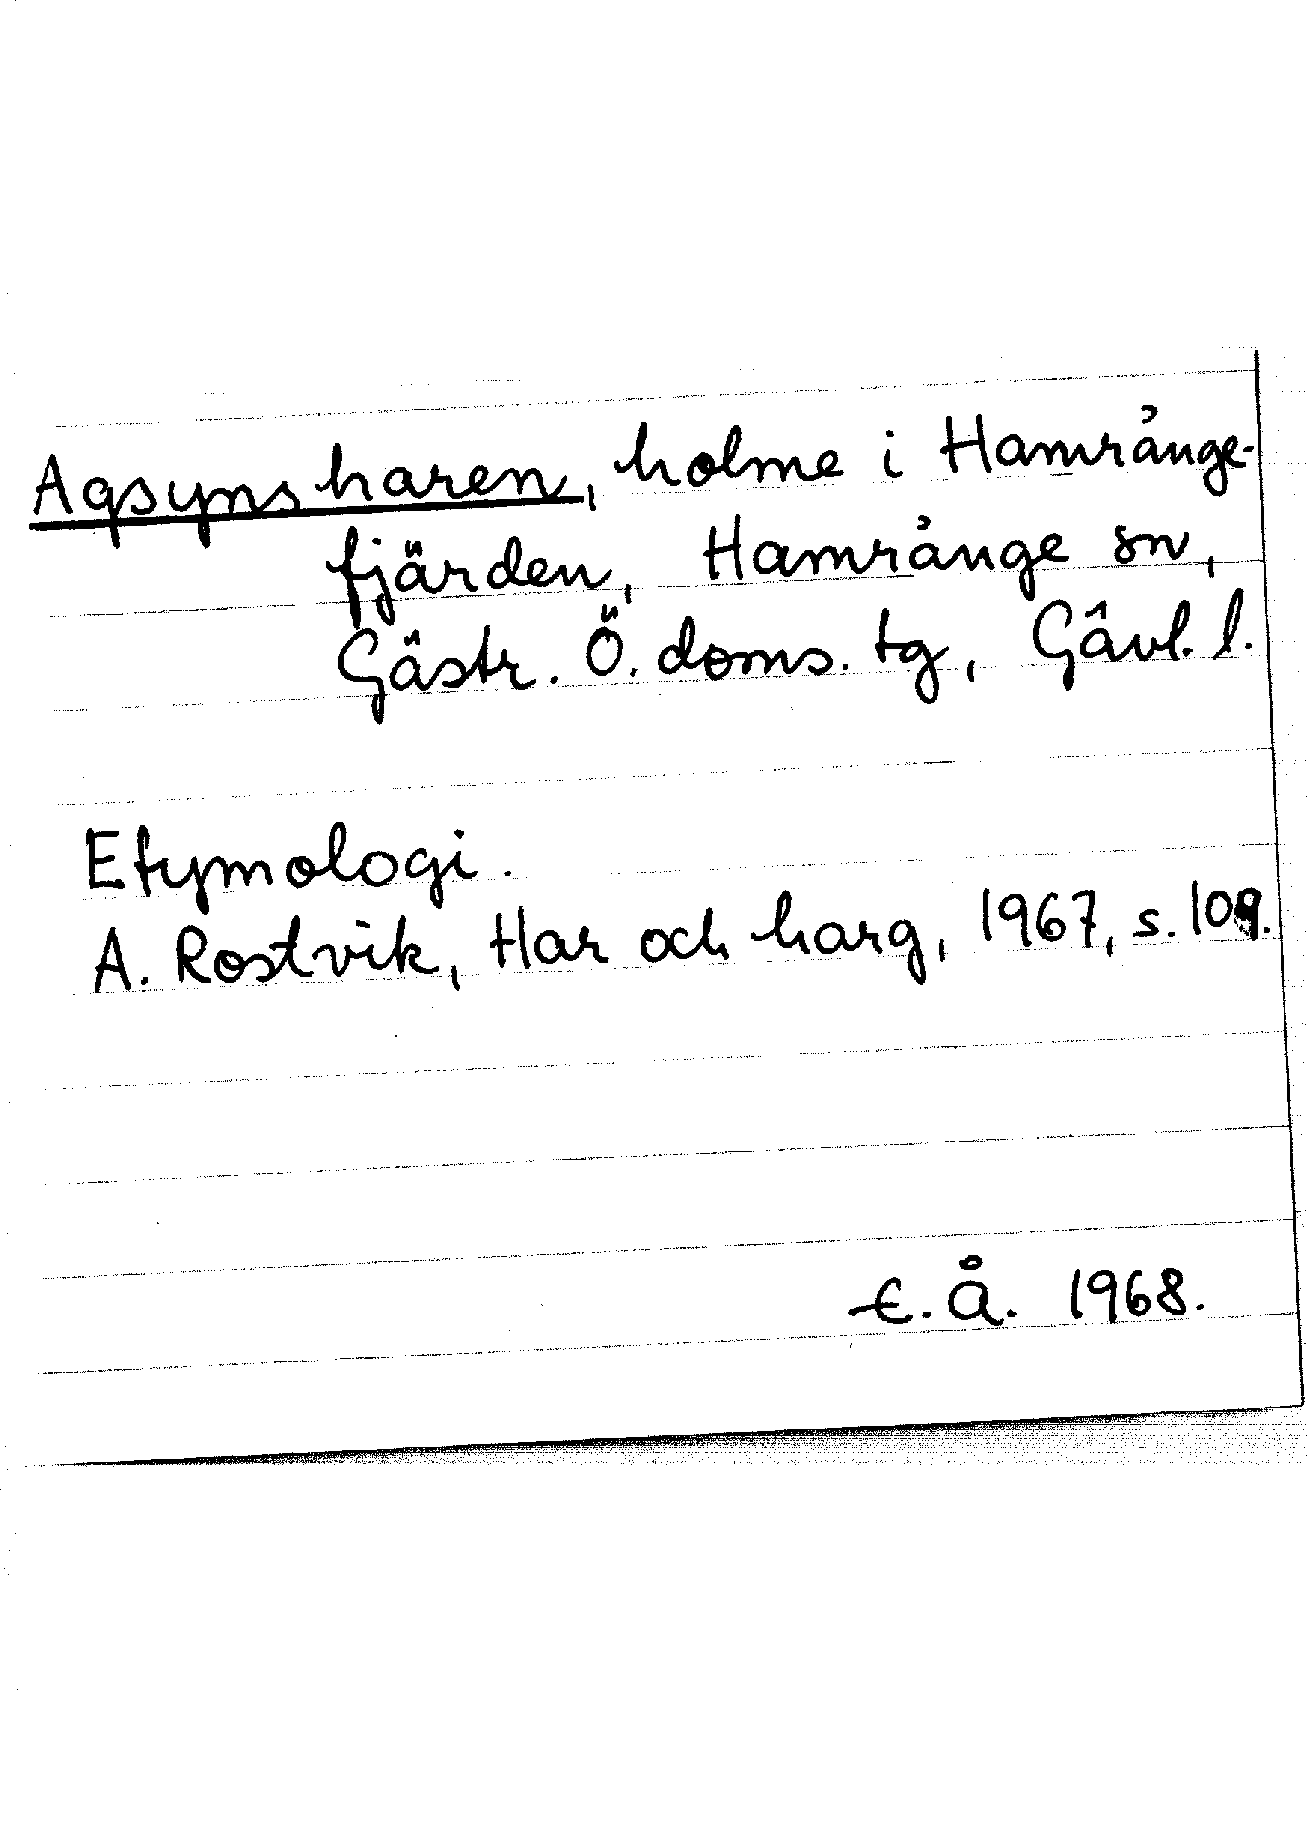 Agsynsharen, holme i Hamrånge-
fjärden, Hamrånge sn,
Gästr. Ö. doms. tg, Gävl. l.
Etymologi.
A. Rostvik, Har och harg, 1967, s. 109.
E. Å. 1968.